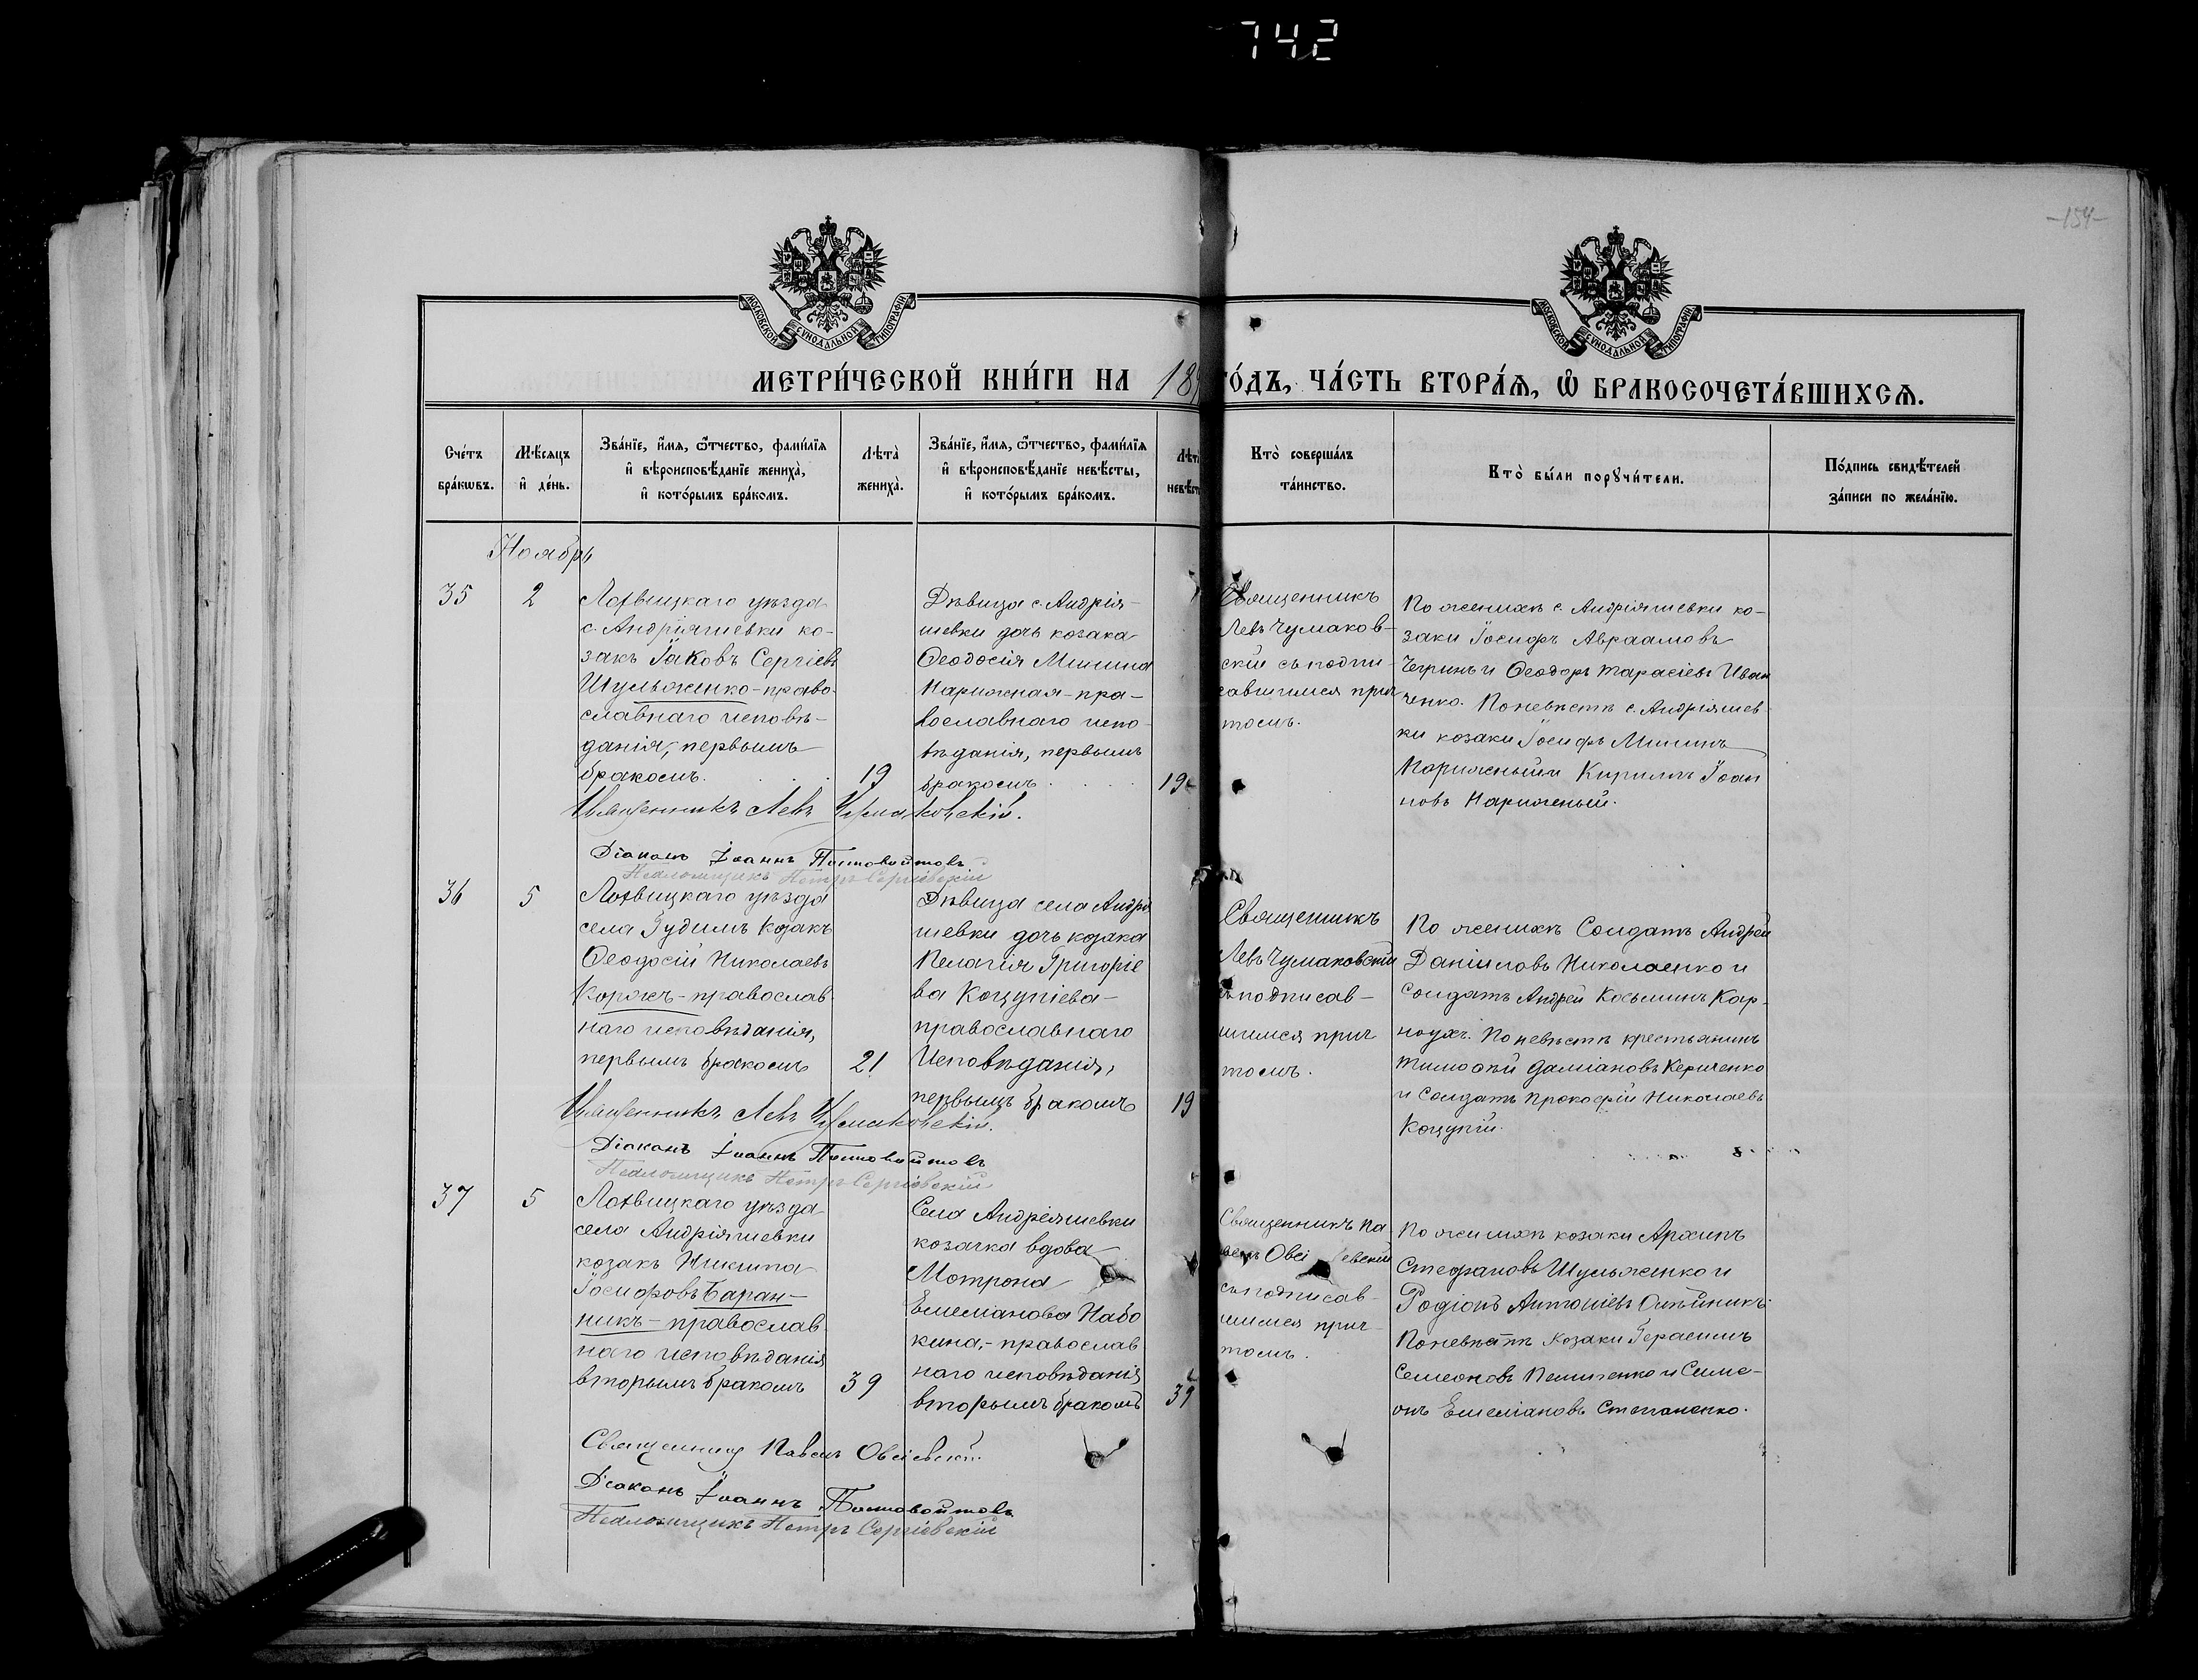 742
-154-
МОСКОВСКОЙ СУНОДАЛЬНОЙ ТИПОГРАФІИ
МОСКОВСКОЙ СУНОДАЛЬНОЙ ТИПОГРАФІИ
МЕТРИ́ЧЕСКОЙ КНИ́ГИ НА 18
ГО́ДЪ, ЧА́СТЬ ВТОРА́Я, Ѡ БРАКОСОЧЕТА́ВШИХСЯ.
Сче́тъ
бра́кѡвъ.
Мѣ́сяцъ
и де́нь.
Зва́нїе, и́мя, ѻ҆́тчество, фами́лїя
и вѣроисповѣ́данїе жениха̀,
и кото́рымъ бра́комъ.
Лѣта̀
жениха̀.
Зва́нїе, и́мя, ѻ҆́тчество, фами́лїя
и вѣроисповѣ́данїе невѣ́сты,
и кото́рымъ бра́комъ.
Лѣта
невѣст
Кто̀ соверша́лъ
та́инство.
Кто̀ бы́ли порꙋчи́тели.
По́дпись свидѣ́телей
за́писи по жела́нїю.
Ноябрь
35
2
Лохвицкаго уѣзда
с. Андріяшевки ко-
закъ Іаковъ Сергіевъ
Шульженко - право-
славнаго исповѣ-
данія, первымъ
бракомъ.
19
Дѣвица с. Андрія-
шевки дочь козака
Ѳеодосія Минина
Нарижная - пра-
вославнаго испо-
вѣданія, первымъ
бракомъ.
19
Священникъ
Левъ Чумаков-
скій съ подпи-
савшимся прич
томъ.
По женихѣ с. Андріяшевки ко-
заки Іосифъ Авраамовъ
и Ѳеодоръ Тарасіевъ Иван
ченко. По невѣстѣ с. Андріяшев
ки козаки Іосифъ Мининъ
Нарижный и Кириллъ Іоан
новъ Нарижный.
Священникъ Левъ Чумаковскій.
Діаконъ Іоаннъ Постовойтовъ
Псаломщикъ Петръ Сергіевскій
36
5
Лохвицкаго уѣзда
села Гудимъ козакъ
Ѳеодосій Николаевъ
Коржъ - православ
наго исповѣданія,
первымъ бракомъ
21
Дѣвица села Андрія
шевки дочь козака
Пелагія Григоріе
ва Коцупіева -
православнаго
исповѣданія,
первымъ бракомъ
19
Священникъ
Левъ Чумаковскій
съ подписав-
шимся прич
томъ.
По женихѣ Солдатъ Андрей
Даніиловъ Николаенко и
Солдатъ Андрей Косьминъ Кар-
ноухъ. По невѣстѣ крестьянинъ
Тимоѳей Даміановъ Кериченко
и Солдатъ Прокофій Николаевъ
Коцупій.
Священникъ Левъ Чумаковскій.
Діаконъ Іоаннъ Постовойтовъ
Псаломщикъ Петръ Сергіевскій
37
5
Лохвицкаго уѣзда
села Андріяшевки
козакъ Никита
Іосифовъ Баран-
никъ - православ
наго исповѣданія
вторымъ бракомъ
39
Села Андріяшевки
козачка вдова
Мотрона
Емеліанова Набо
кина, - православ
наго исповѣданія
вторымъ бракомъ
39
Священникъ Па
велъ Овсіевскій
съ подписав-
шимся прич-
томъ.
По женихѣ козаки Архипъ
Стефановъ Шульженко и
Родіонъ Антоніевъ Олѣйникъ
По невѣстѣ козаки Герасимъ
Семеоновъ и Симе-
онъ Емеліановъ Степаненко.
Священникъ Павелъ Овсіевскій.
Діаконъ Іоаннъ Постовойтовъ
Псаломщикъ Петръ Сергіевскій